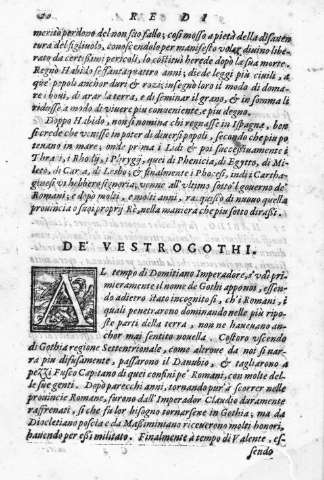 RE DI
meritò perdono del non suo fallo; così mosso a pietà della disauen-
tura del figliuolo, conoscendolo per manifesto voler diuino libe-
rato da certissimi pericoli, lo costituì herede dopò la sua morte.
Regnò Habido sessantaquattro anni; diede leggi più ciuili, a
que' popoli anchor duri & rozi; insegnò loro il modo di doma-
re i boui, di arar la terra, e di seminar il grano, & in somma li
ridusse a modo di viuere più conueniente, e più degno.
Doppo Habido, non si nomina chi regnasse in Ispagna, ben
si crede che venisse in poter di diuersi popoli, secondo che più po-
tenano in mare; onde prima i Lidi & poi successiuamente i
Thraci, i Rhodij, i Phrygij, quei di Phenicia, di Egytto, di Mi-
leto, di Caria, di Lesbo; & finalmente i Phocesi, indi i Cartha-
ginesi v'hebbero signoria; venne all'vltimo sotto'l gouerno de'
Romani; e dopò molti, e molti anni, racquistò di nuouo quella
prouincia o suoi proprij Rè, nella maniera che più sotto dirassi.
DE' VESTROGOTHI.
AL tempo di Domitiano Imperadore, s'vdì pri-
mieramente il nome de Gothi appo noi, essen-
do adietro stato incognito sì, ch'i Romani, i
quali penetrarono dominando nelle più ripo-
ste parti della terra, non ne haueuano an-
chor mai sentito nouella. Costoro vscendo
di Gothia regione Settentrionale, come altroue da noi si nar-
ra più diffusamente, passarono il Danubio, & tagliarono a
pezzi Fusco Capitano di quei confini pe' Romani, con molte del-
le sue genti. Dapò parecchi anni, tornando pur'a scorrer nelle
prouincie Romane, furono dall'Imperador Claudio duramente
raffrenati, sì che fu lor bisogno tornarsene in Gothia; ma da
Diocletiano poscia e da Massimiano riceuerono molti honori,
hauendo per essi militato. Finalmente a tempo di Valente, es-
sendo